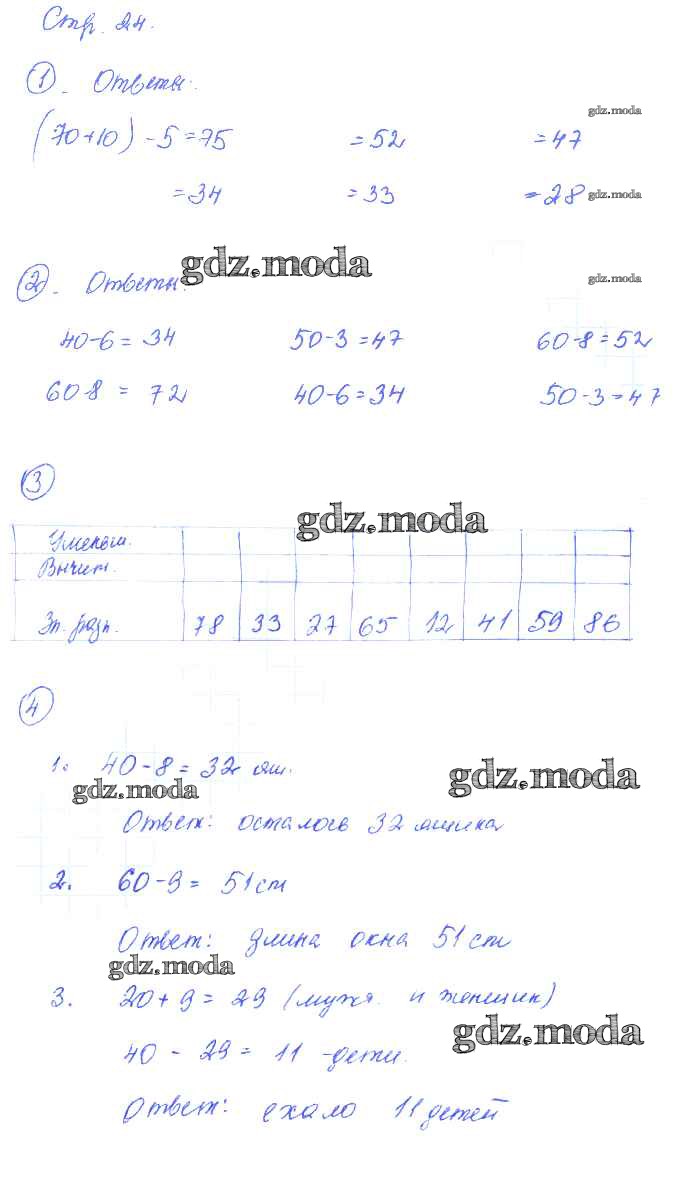 Стр. 24.
1. Ответы:
gdz.moda
(70+10) - 5 = 75 = 52 = 47
= 34 = 33 = 28 gdz.moda
gdz.moda
2. Ответы: gdz.moda
40-6 = 34 50-3 = 47 60-8 = 52
60-8 = 72 40-6 = 34 50-3 = 47
3
gdz.moda
Уменьш.
Вычит.
Зн. разн. 78 33 27 65 12 41 59 86
4
1. 40-8 = 32 ящ. gdz.moda
gdz.moda
Ответ: осталось 32 ящика
2. 60-9 = 51 см
Ответ: длина окна 51 см
gdz.moda
3. 20+9 = 29 (мужч. и женщин)
gdz.moda
40 - 29 = 11 -дети.
Ответ: ехало 11 детей